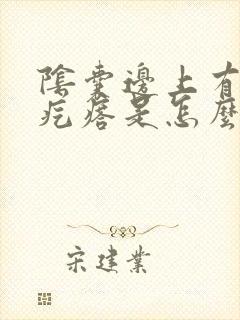 陰囊邊上有
疙瘩是怎麼
宋建業